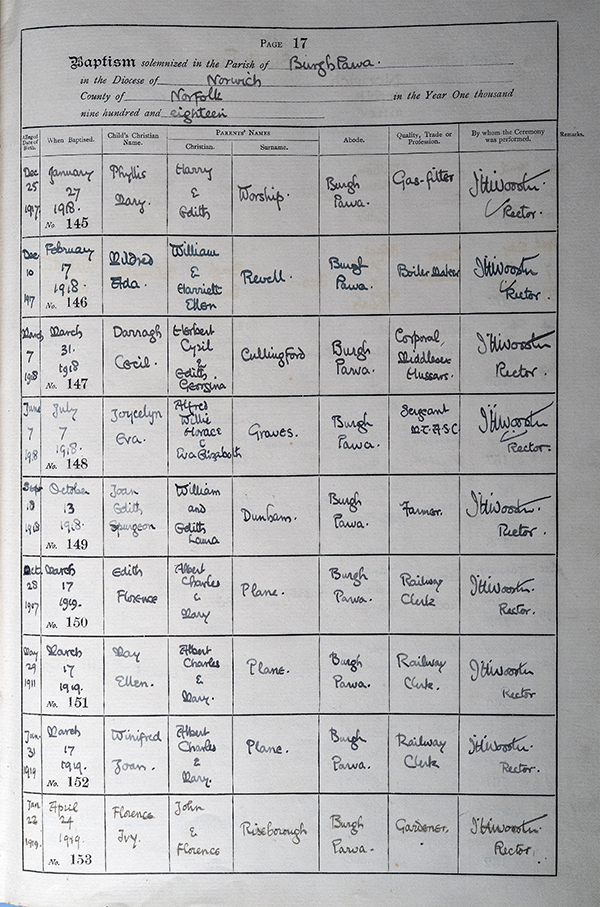 PAGE 17
Baptism solemnized in the Parish of Burgh Parva.
in the Diocese of Norwich
County of Norfolk in the Year One thousand
nine hundred and eighteen
Alleged Date of Birth. When Baptised. Child's Christian Name. PARENTS' NAMES Christian. Surname. Abode. Quality, Trade or Profession. By whom the Ceremony was performed. Remarks.
Dec 25 1917 January 27 1918. No. 145 Phyllis Mary. Harry & Edith Worship. Burgh Parva. Gas-fitter Rector.
Dec 10 1917 February 17 1918. No. 146 Mildred Ada. William & Harriett Ellen Revell. Burgh Parva. Boiler Maker Rector.
March 7 1918 March 31. 1918 No. 147 Darragh Cecil. Herbert Cyril & Edith Georgina Cullingford Burgh Parva. Corporal, Middlesex Hussars. Rector.
June 7 1918 July 7 1918. No. 148 Joycelyn Eva. Alfred Willie Horace & Eva Elizabeth Graves. Burgh Parva. Sergeant M.T.A.S.C Rector.
Sept 13 1918 October 13 1918. No. 149 Joan Edith Spurgeon William and Edith Laura Dunham. Burgh Parva. Farmer. Rector.
Oct. 28 1907 March 17 1919. No. 150 Edith Florence Albert Charles & Mary Plane. Burgh Parva. Railway Clerk Rector.
May 29 1911 March 17 1919. No. 151 May Ellen. Albert Charles & Mary. Plane. Burgh Parva. Railway Clerk. Rector
Jan. 31 1919 March 17 1919. No. 152 Winifred Joan. Albert Charles & Mary. Plane. Burgh Parva. Railway Clerk Rector.
Jan 22 1919. April 24 1919. No. 153 Florence Ivy. John & Florence Riseborough Burgh Parva. Gardener. Rector.